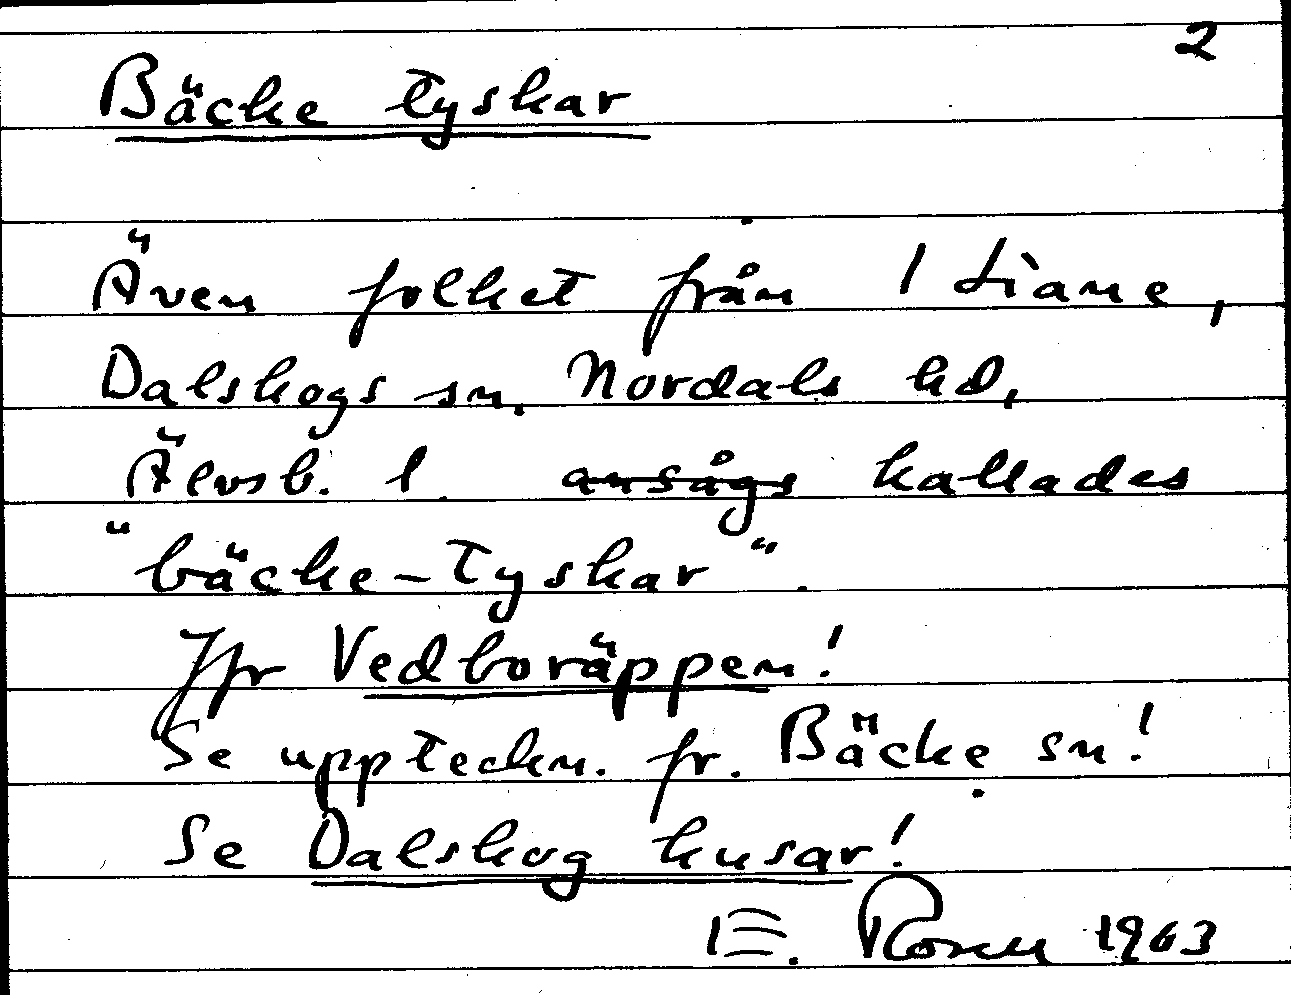 2
Bäcke tyskar
Även folket från Liane,
Dalskogs sn, Nordals hd,
Älvsb. l. ansågs kallades
"bäcke-tyskar".
Jfr Vedboräppen!
Se uppteckn. fr. Bäcke sn!
Se Dalskog husar!
E. Rosen 1963